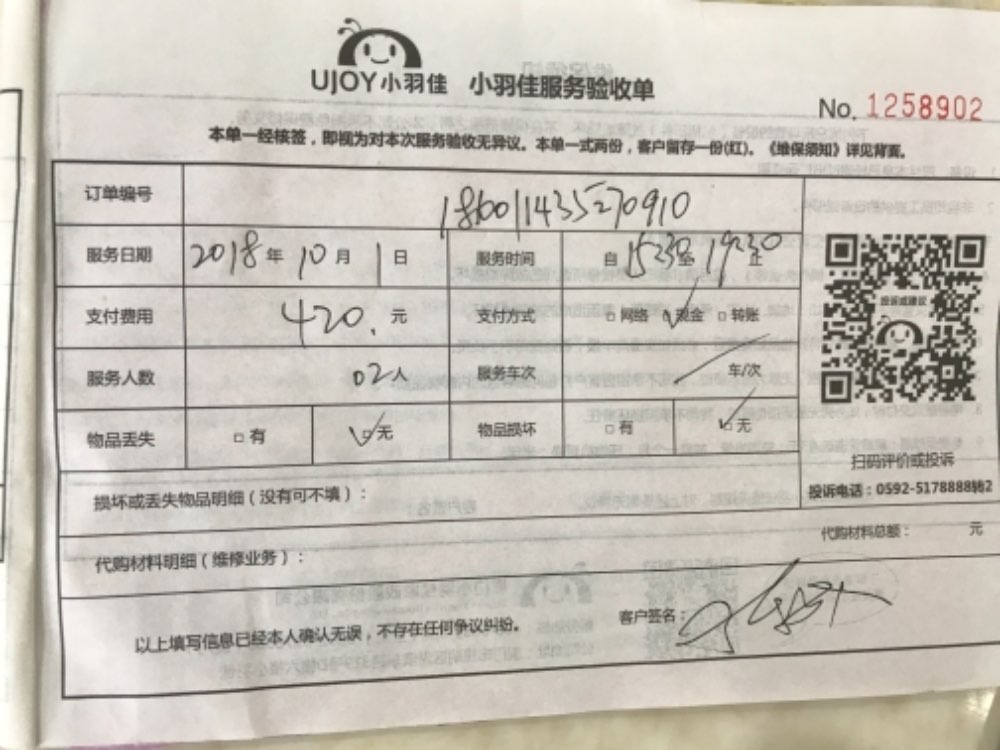 UJOY小羽佳 小羽佳服务验收单
No. 1258902
本单一经核签，即视为对本次服务验收无异议。本单一式两份，客户留存一份(红)。《维保须知》详见背面。
订单编号 186011435270910
服务日期 2018年 10月 1日 服务时间 自 15:30 至 19:30 止
支付费用 420.元 支付方式 □网络 ☑现金 □转账
服务人数 02人 服务车次 / 车/次
物品丢失 □有 ☑无 物品损坏 □有 ☑无
投诉或建议
扫码评价或投诉
投诉电话：0592-5178888转2
损坏或丢失物品明细（没有可不填）：
代购材料明细（维修业务）： 代购材料总额： 元
以上填写信息已经本人确认无误，不存在任何争议纠纷。 客户签名：